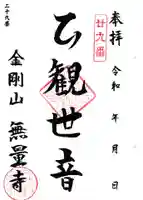 奉拝
令和 年 月 日
廿九番
観世音
二十九番
金剛山 無量寺